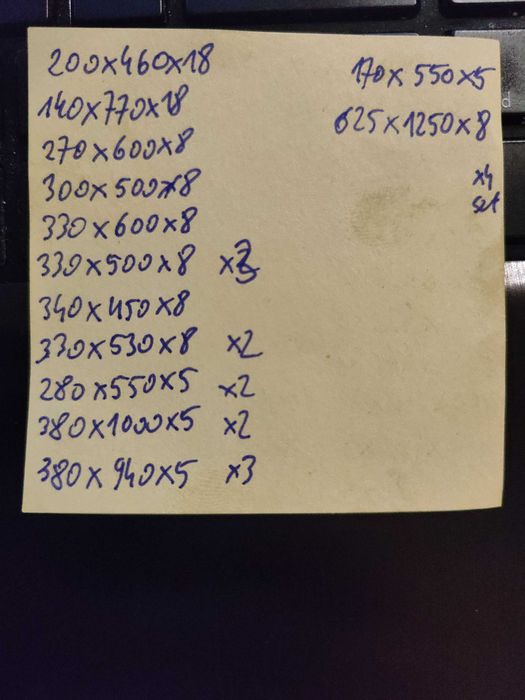 200x460x18
140x770x18
270x600x8
300x500x8
330x600x8
330x500x8
340x450x8
330x530x8 x2
280x550x5 x2
380x1000x5 x2
380x940x5 x3
170x550x5
625x1250x8
x4
set